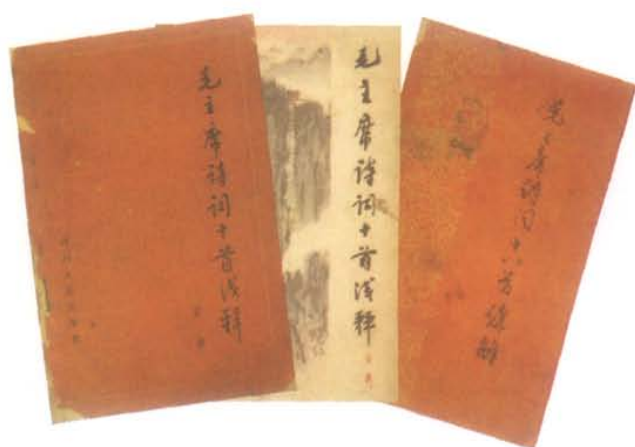 毛主席诗词十首浅释
毛主席诗词十首浅释
毛主席诗词十八首讲解